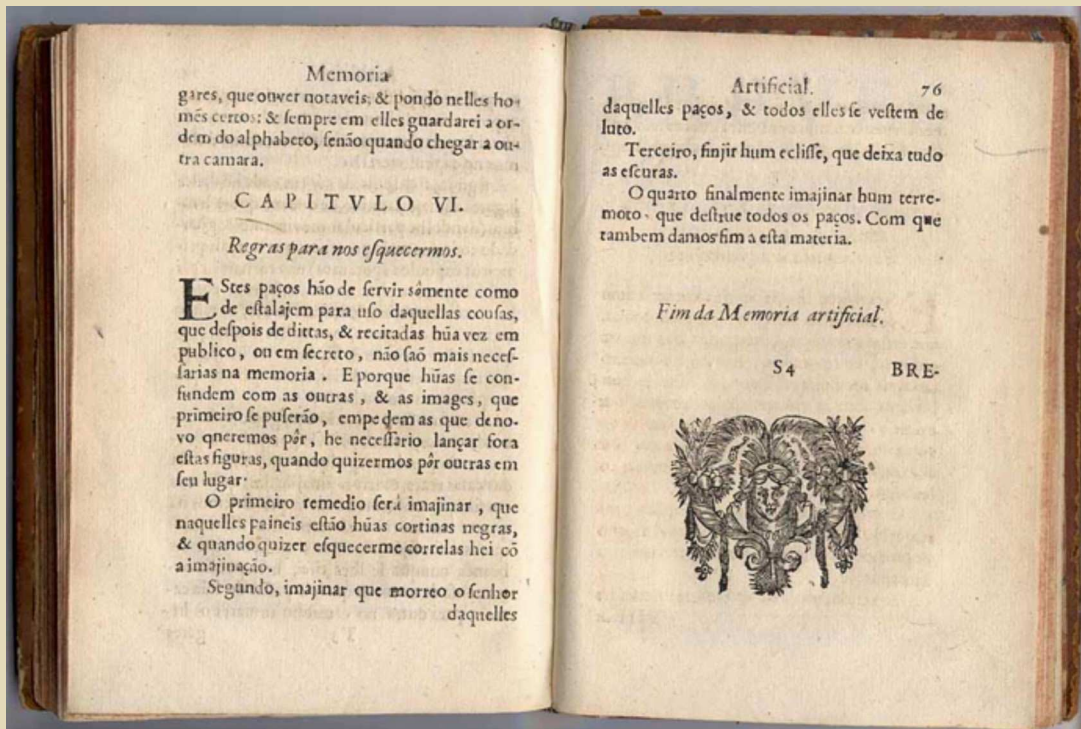 Memoria
gares, que onver notaveis; & pondo nelles ho-
mẽs certos: & ſempre em elles guardarei a or-
dem do alphabeto, ſenão quando chegar a ou-
tra camara.
CAPITVLO VI.
Regras para nos eſquecermos.
EStes paços hão de ſervir sômente como
de eſtalajem para uſo daquellas couſas,
que deſpois de dittas, & recitadas hũa vez em
publico, ou em ſecreto, não ſaõ mais neceſ-
ſarias na memoria. E porque hũas ſe con-
fundem com as outras, & as images, que
primeiro ſe puſerão, empedem as que de no-
vo queremos pôr, he neceſſario lançar fora
eſtas figuras, quando quizermos pôr outras em
ſeu lugar.
O primeiro remedio ſerá imajinar, que
naquelles paineis eſtão hũas cortinas negras,
& quando quizer eſquecerme correlas hei cõ
a imajinação.
Segundo, imajinar que morreo o ſenhor
daquelles
Artificial. 76
daquelles paços, & todos elles ſe veſtem de
luto.
Terceiro, finjir hum ecliſſe, que deixa tudo
as eſcuras.
O quarto finalmente imajinar hum terre-
moto, que deſtrue todos os paços. Com que
tambem damos fim a eſta materia.
Fim da Memoria artificial.
S4 BRE-